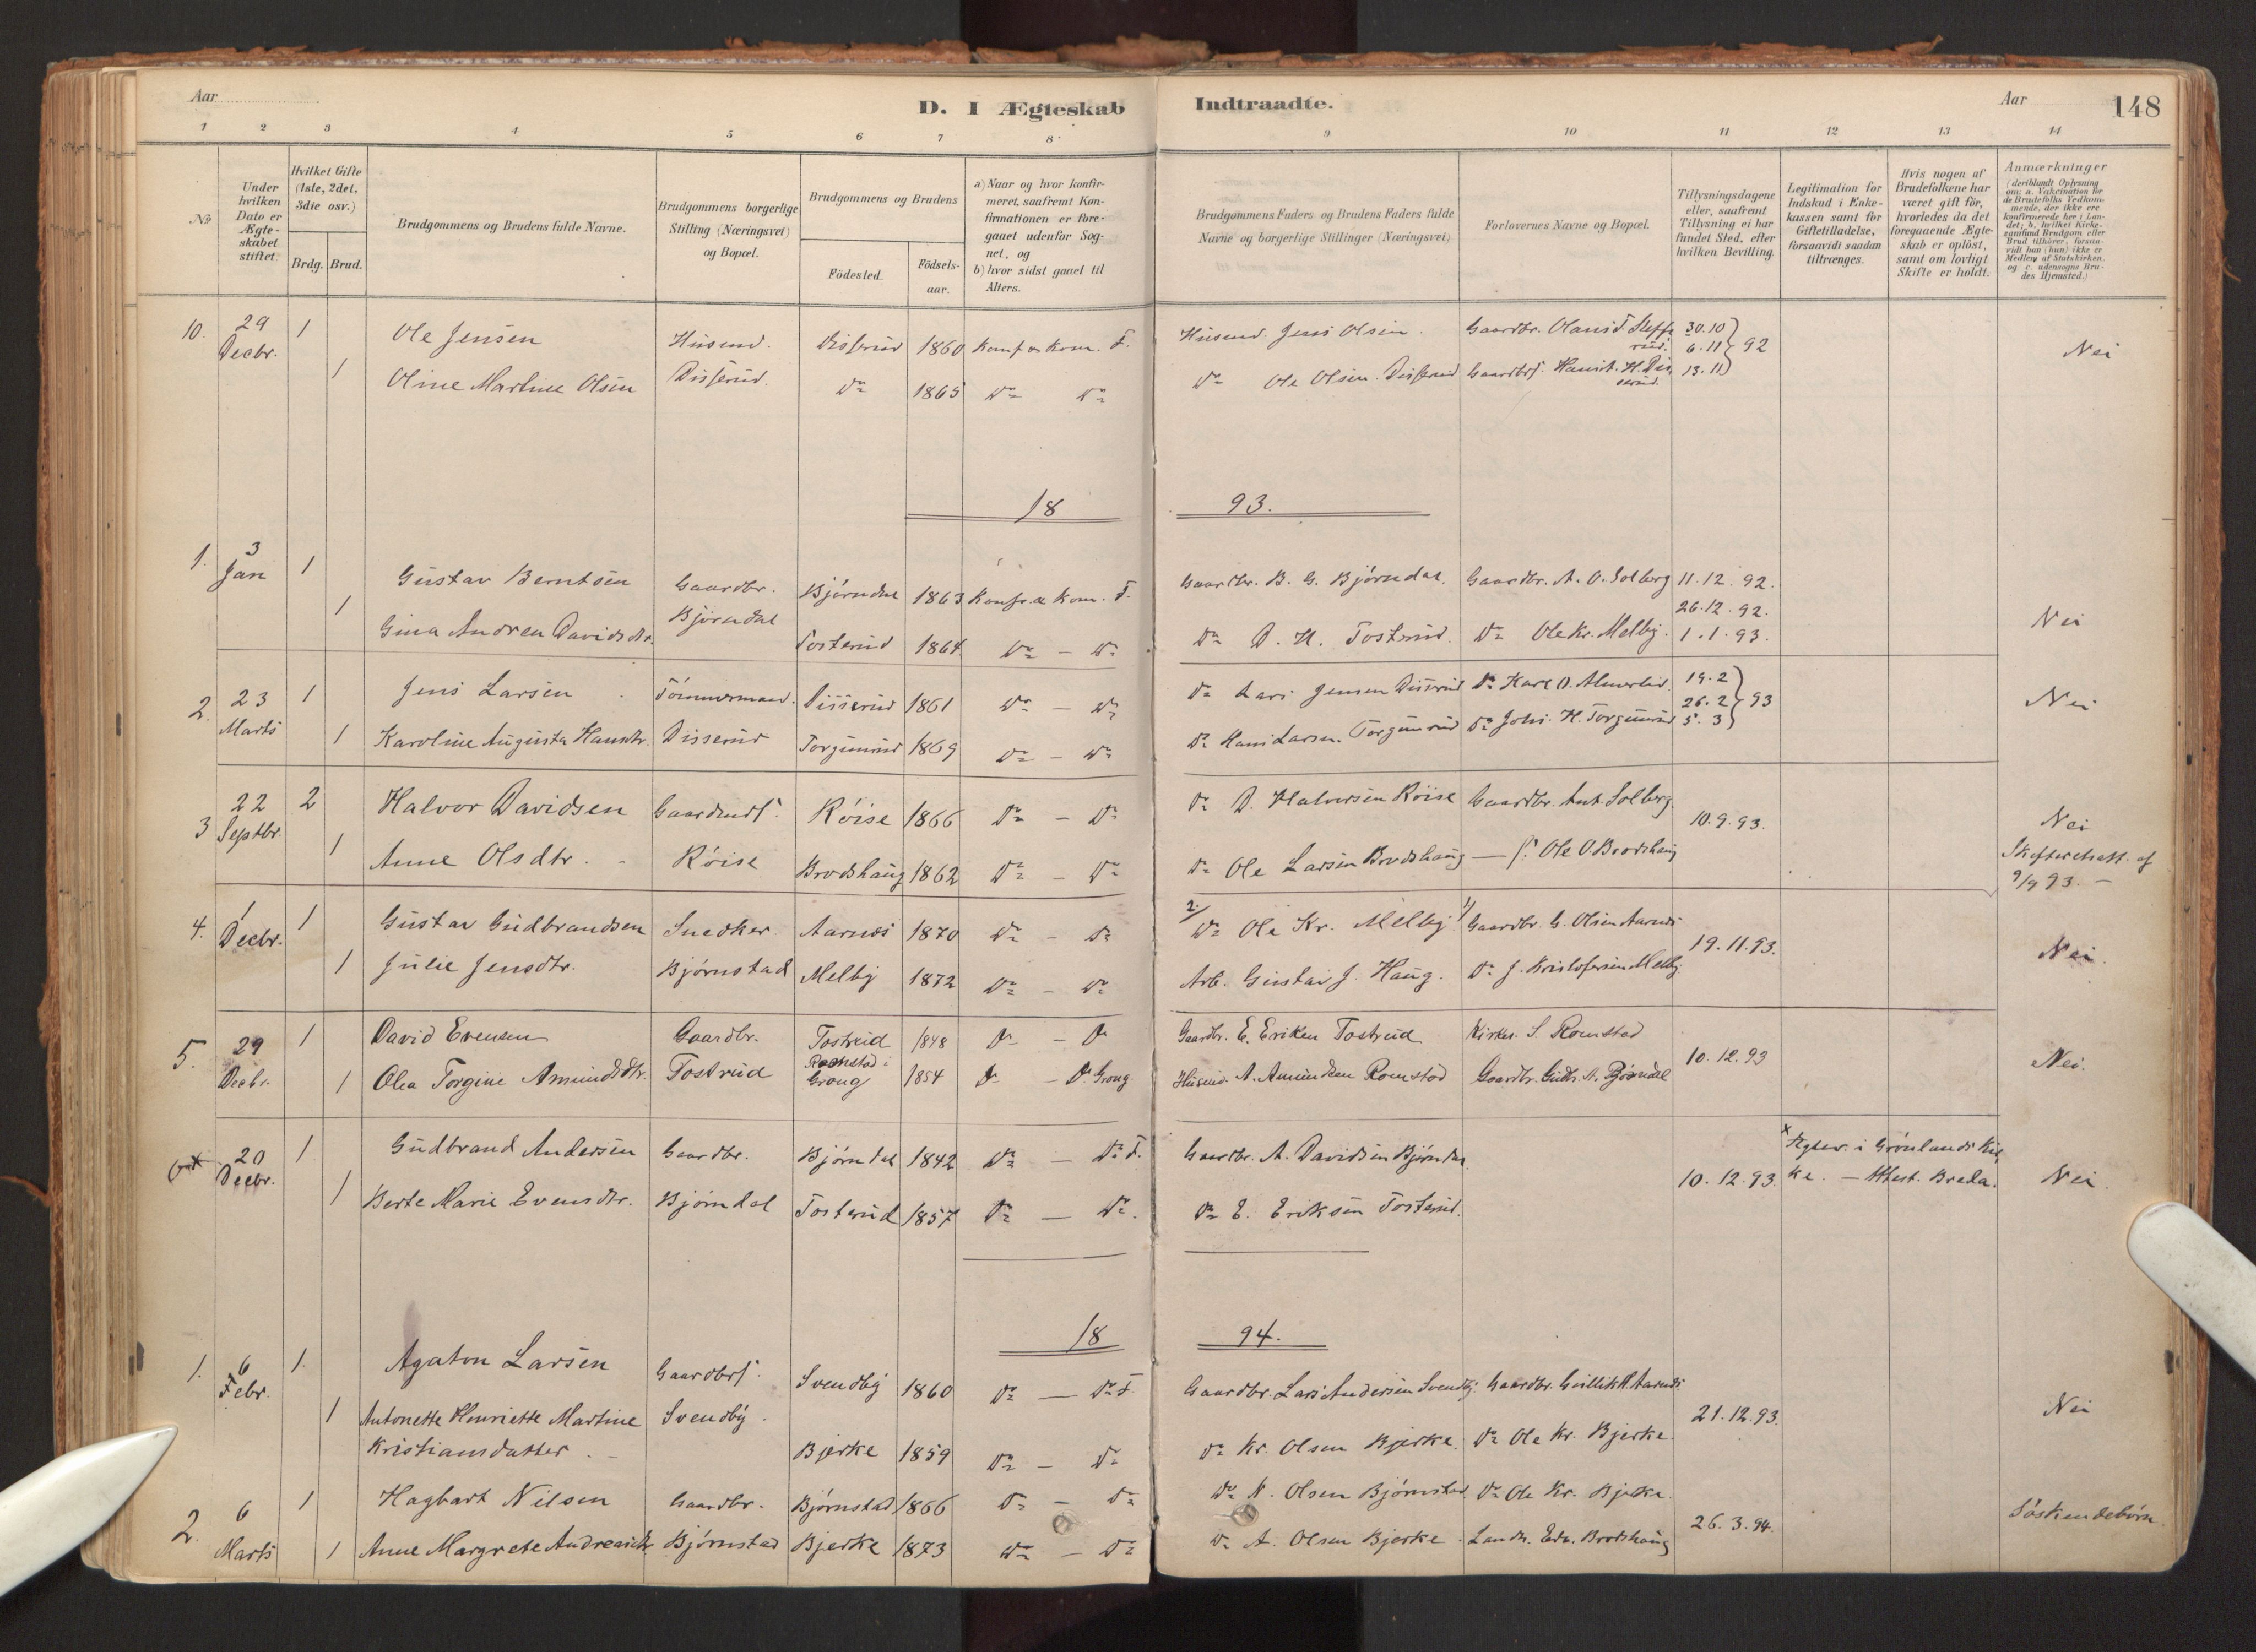 Aar
D. I Ægteskab Indtraadte.
Aar
148
1 2 3 4 5 6 7 8 9 10 11 12 13 14
No
Under hvilken Dato er Ægteskabet stiftet.
Hvilket Gifte (1ste, 2det, 3die osv.)
Brdg. Brud.
Brudgommens og Brudens fulde Navne.
Brudgommens borgerlige Stilling (Næringsvei) og Bopæl.
Brudgommens og Brudens
Födested.
Födsels-aar.
a) Naar og hvor konfirmeret, saafremt Konfirmationen er foregaaet udenfor Sognet, og
b) hvor sidst gaaet til Alters.
Brudgommens Faders og Brudens Faders fulde Navne og borgerlige Stillinger (Næringsvei)
Forlovernes Navne og Bopæl.
Tillysningsdagene eller, saafremt Tillysning ei har fundet Sted, efter hvilken Bevilling.
Legitimation for Indskud i Enkekassen samt for Giftetilladelse, forsaavidt saadan tiltrænges.
Hvis nogen af Brudefolkene har været gift för, hvorledes da det foregaaende Ægteskab er oplöst, samt om lovligt Skifte er holdt.
Anmærkninger (deriblandt Oplysning om: a. Vakcination for de Brudefolks Vedkommende, der ikke ere konfirmerede her i Landet; b. hvilket Kirkesamfund Brudgom eller Brud tilhörer, forsaavidt han (hun) ikke er Medlem af Statskirken. og c. udensogns Brudes Hjemsted.)
10. 29 Decbr. 1 Ole Jensen Husmd. Disserud 1860 Konf. og Kom. F. Husmd. Jens Olsen. Gaardbr. 30.10
6.11 } 92 Nei
1 Oline Martine Olsen Disserud. Do 1865 Do Do Do Ole Olsen Disserud 13.11
18 93.
1. 3 Jan 1 Gustav Berntsen Gaardbr. Bjørndal 1863 Konf. & Kom. F. Gaardbr. B. G. Bjørndal. Gaardbr. A. O. Solberg 11.12.92.
26.12.92. Nei
1 Gina Andrea Davidsdtr. Bjørndal Tosterud 1864 Do - Do Do D. H. Tosterud. Do Ole Kr. Melby. 1.1.93.
2. 23 Marts 1 Jens Larsen Tømmermand. Disserud 1861 Do - Do Do Lars Jensen Disserud Do Karl O. 19.2
26.2 } 93 Nei
1 Karoline Augusta Hansdtr. Disserud Torgunrud 1869 Do - Do Do Hans Larsn. Torgunrud Do Johs. H. Torgunrud 5.3
3 22 Septbr. 2 Halvor Davidsen Gaardmds. Røise 1866 Do - Do Do D. Halvorsen Røise Gaardbr. Ant. Solberg 10.9.93. Nei
1 Anne Olsdtr. Røise Brodshaug 1862 Do - Do Do Ole Larsen Brodshaug — S. Ole O Brodshaug Skifteattest af 9/9 93. —
4. 1 Decbr. 1 Gustav Gudbrandsen Snedker. Aarnæs 1870 Do - Do 2/ Do Ole Kr. Melby 1/ Gaardbr. G. Olsen Aarnæs 19.11.93. Nei.
1 Julie Jensdtr. Bjørnstad Melby 1872 Do - Do Arb. Gustav J. Haug. Do J. Kristofersen Melby
5. 29 Decbr. 1 David Evensen Gaardbr. Tostrud 1848 Do - Do Gaardbr. E. Eriksen Tostrud Kirkes. S. Romstad 10.12.93 Nei.
1 Olea Torgine Amundsdtr. Tostrud Romstad i Grong 1854 Do - Do. Grong. Husmd. A. Amundsen Romstad Gaardbr. Gudb. A. Bjørndal
20 Decbr. 1 Gudbrand Andersen Gaardbr. Bjørndal 1842 Do - Do F. Gaardbr. A. Davidsen Bjørndal 10.12.93. x Ægtev. i Grønlands Kirke. — Attest. Breda. Nei
1 Berte Marie Evensdtr. Bjørndal Tosterud 1857 Do - Do. Do E. Eriksen Tosterud.
18 94.
1. 6 Febr. 1. Agaton Larsen Gaardbrs. Svendby 1860 Do - Do F. Gaardbr. Lars Andersen Svendby. Gaardbr. Aarnæs 21.12.93. Nei
1 Antonette Henriette Martine Kristiansdatter Svendby. Bjerke 1859 Do - Do Do Kr. Olsen Bjerke. Do Ole Kr. Bjerke.
2. 6 Marts 1 Hagbart Nilsen Gaardbr. Bjørnstad 1866 Do - Do Do N. Olsen Bjørnstad. Do Ole Kr. Bjerke. 26.3.94. Söskendebörn
1 Anne Margrete Andreasdtr Bjørnstad Bjerke 1873 Do - Do Do A. Olsen Bjerke. Landh. Edv. Brodshaug